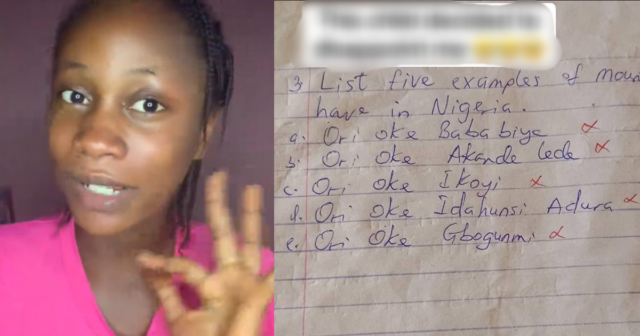 3 List five examples of
have in Nigeria.
a. Ori oke Bababiye x
b. Ori oke Akande lede x
c. Ori oke Ikoyi x
d. Ori oke Idahunsi Adura x
e. Ori oke Gbogunmi x